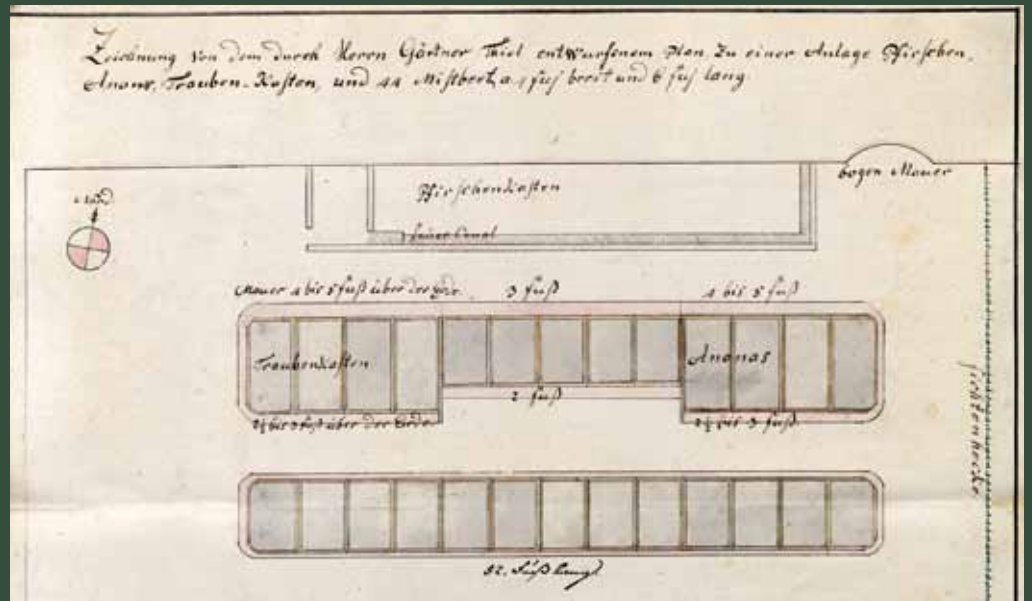 Zeichnung von dem durch Herrn Gärtner Thiel entworfenem Plan zu einer Anlage Pfirschen,
Anans, Trauben-Kasten, und 44 Mistbeet, a 4 fuß breit und 6 fuß lang
bogen Mauer
Nord
Pfirschenkasten
feuer Canal
Mauer 4 bis 5 fuß über der Erde.
3 fuß
4 bis 5 fuß
Traubenkasten
Ananas
2 fuß
2½ bis 3 fuß über der Erde.
2½ bis 3 fuß.
fichtenhecke
52. Fuß lang.